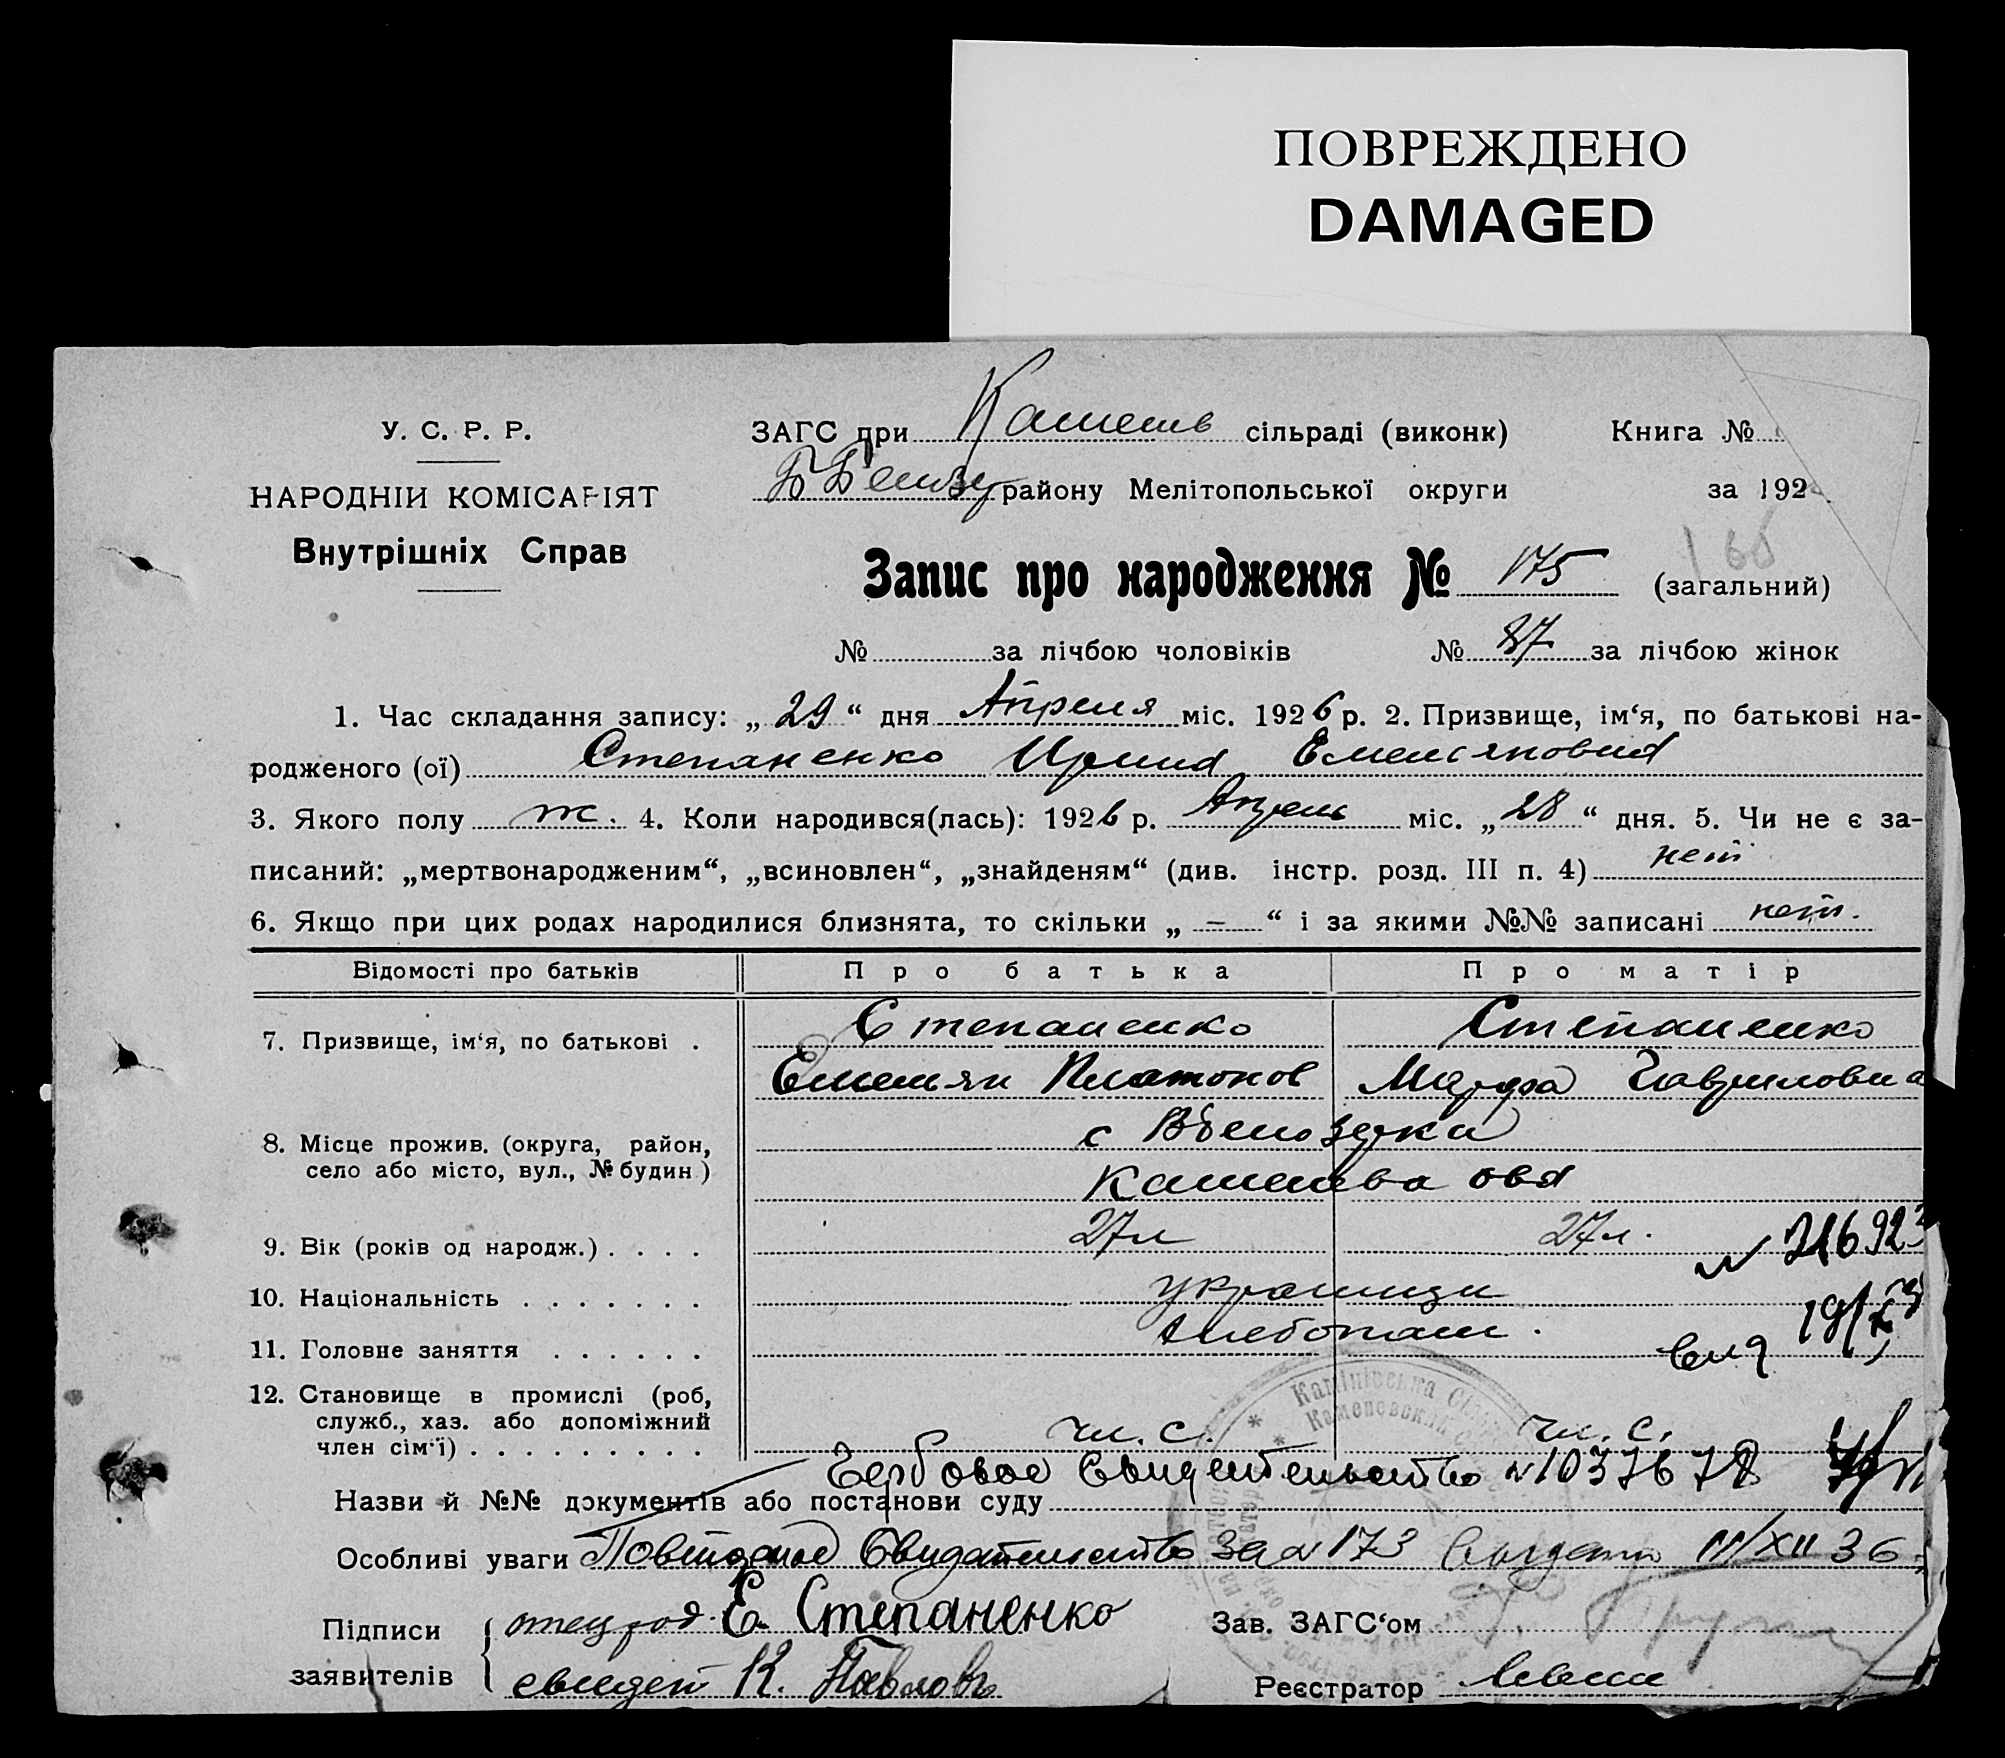 ПОВРЕЖДЕНО
DAMAGED
У. С. Р. Р.
НАРОДНІИ КОМІСАРІЯТ
Внутрішніх Справ
ЗАГС при Каменев сільраді (виконк)
Книга №
района Мелітопольської округи
за 192
Запис про народження № 175 (загальний)
№ за лічбою чоловіків № 87 за лічбою жінок
1. Час складання запису: „ 29 “ дня Апреля міс. 1926 р. 2. Призвище, ім‘я, по батькові на-
родженого (ої) Степаненко Ирина Емельяновна
3. Якого полу ж. 4. Коли народився(лась): 1926 р. Апрель міс. „ 28 “ дня. 5. Чи не є за-
писаний: „мертвонародженим“, „всиновлен“, „знайденям“ (див. інстр. розд. III п. 4) нет
6. Якщо при цих родах народилися близнята, то скільки „ – “ і за якими №№ записані нет.
Відомості про батьків
Про батька
Про матір
7. Призвище, ім‘я, по батькові .
Степаненко
Емельян Платонов
Степаненко
Марфа Гавриловна
8. Місце прожив. (округа, район,
село або місто, вул., № будин.)
с Вбелозерка
9. Вік (років од народж.) . . . .
27л
27л.
10. Національність . . . . . . .
украинцы
11. Головне заняття . . . . . .
хлебопаш.
12. Становище в промислі (роб,
служб., хаз. або допоміжний
член сім‘ї) . . . . . . . . . .
чл. с.
чл. с.
Назви й №№ документів або постанови суду Гербовое Свидетельство № 1037678
Особливі уваги Повторное Свидетельство за № 173 Выдано III/XII 36
Підписи
заявителів
отец Е. Степаненко
свидет К. Павлов
Зав. ЗАГС‘ом
Реєстратор